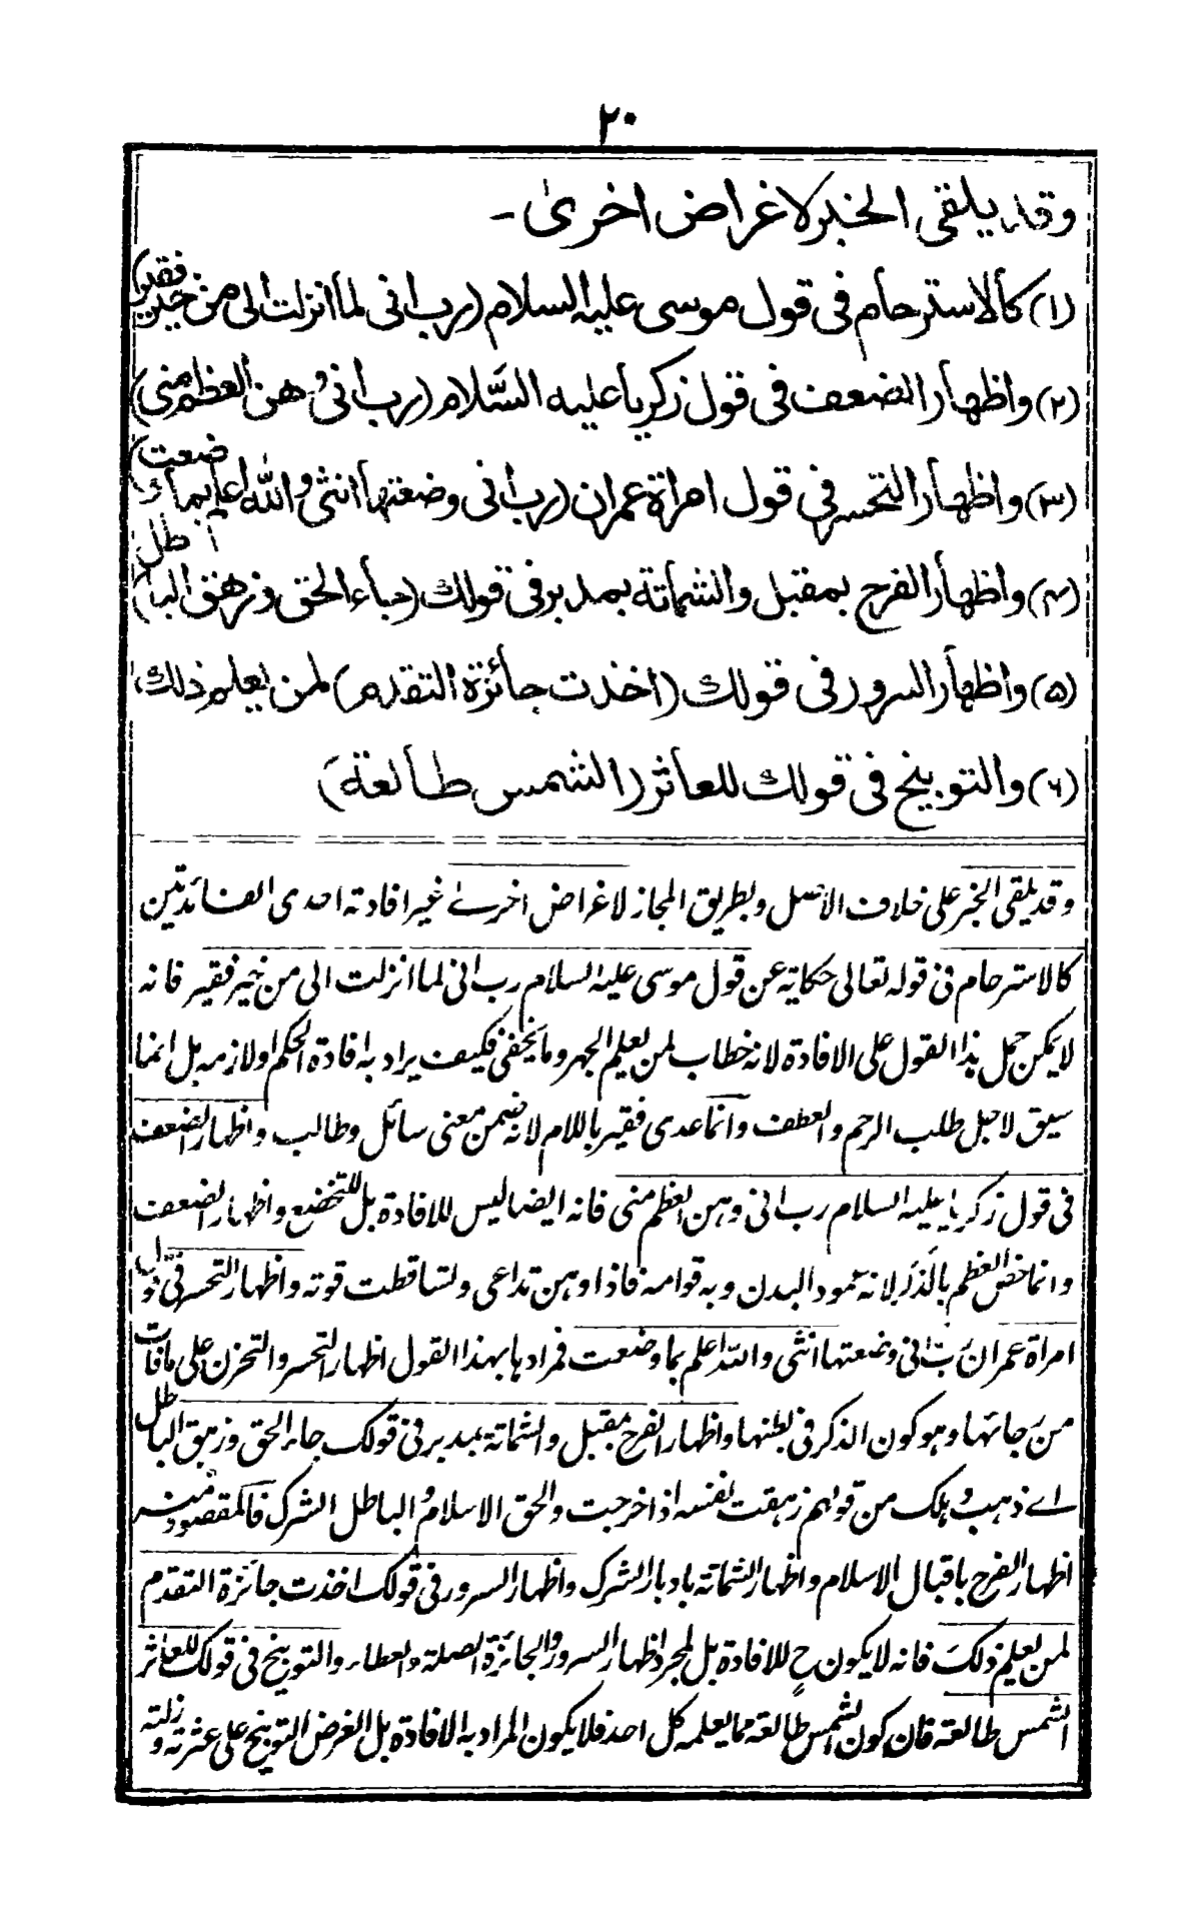 ٢٠
وقد يلقى الخبر لاغراض اخرىٰ -
(١) كالاسترحام فى قول موسى عليه السلام (رب انى لما انزلت الى من خير فقير)
(٢) واظهار الضعف فى قول زكريا عليه السَّلام (رب انى وهن العظم منى)
(٣) واظهار التحسر في قول امراة عمران (رب انى وضعتها انثى والله اعلم بما وضعت)
(٤) واظهار الفرح بمقبل والشماتة بمدبر فى قولك (جاء الحق وزهق الباطل)
(٥) واظهار السرور فى قولك (اخذت جائزة التقدم) لمن يعلم ذلك
(٦) والتوبيخ فى قولك للعاثر (الشمس طالعة)
وقد يلقى الخبر على خلاف الاصل وبطريق المجاز لاغراض اخرىٰ غير افادته احدى الفائدتين
كالاسترحام فى قوله تعالى حكاية عن قول موسى عليه السلام رب انى لما انزلت الى من خير فقير فانه
لا يمكن حمل هذا القول على الافادة لانه خطاب لمن يعلم الجهر وما يخفى فكيف يراد به افادة الحكم او لازمه بل انما
سيق لاجل طلب الرحم والعطف وانما عدى فقير باللام لانه ضمن معنى سائل وطالب واظهار الضعف
فى قول زكريا عليه السلام رب انى وهن العظم منى فانه ايضا ليس للافادة بل للتخضع واظهار الضعف
وانما خص العظم بالذكر لانه عمود البدن وبه قوامه فاذا وهن تداعى وتساقطت قوته واظهار التحسر فى قول
امراة عمران رب انى وضعتها انثى والله اعلم بما وضعت فمرادها بهذا القول اظهار التحسر والتحزن على مافات
من رجائها وهو كون الذكر فى بطنها واظهار الفرح بمقبل والشماتة بمدبر فى قولك جاء الحق وزهق الباطل
اے ذهب وهلك من قولهم زهقت نفسه اذا خرجت والحق الاسلام والباطل الشرك فالمقصود منه
اظهار الفرح باقبال الاسلام واظهار الشماتة بادبار الشرك واظهار السرور فى قولك اخذت جائزة التقدم
لمن يعلم ذلك فانه لا يكون ح للافادة بل لمجرد اظهار السرور والجائزة الصلة والعطاء والتوبيخ فى قولك للعاثر
الشمس طالعة فان كون الشمس طالعة مما يعلمه كل احد فلا يكون المراد به الافادة بل الغرض التوبيخ على عثرته وزلته